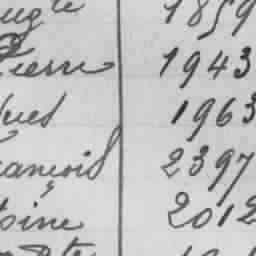 ugle 1859
Pierre 1943
ques 1963
rançois 2397
toine 2012